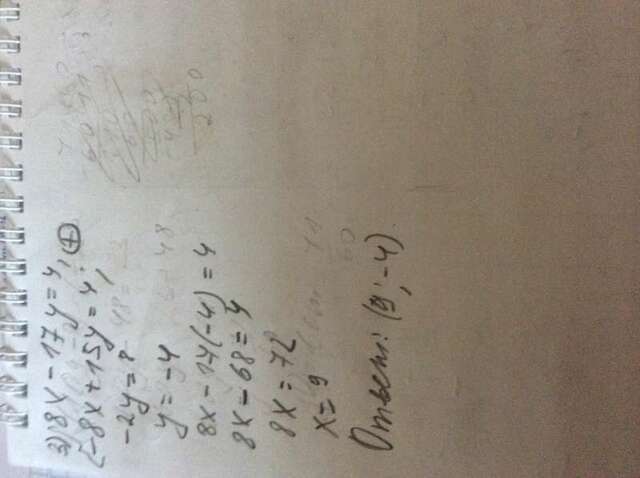 2) 8x - 17y = 4, ⊕
{-8x + 15y = 4;
-2y = 8
y = -4
8x - 17(-4) = 4
8x - 68 = 4
8x = 72
x = 9
Ответ: (9; -4).